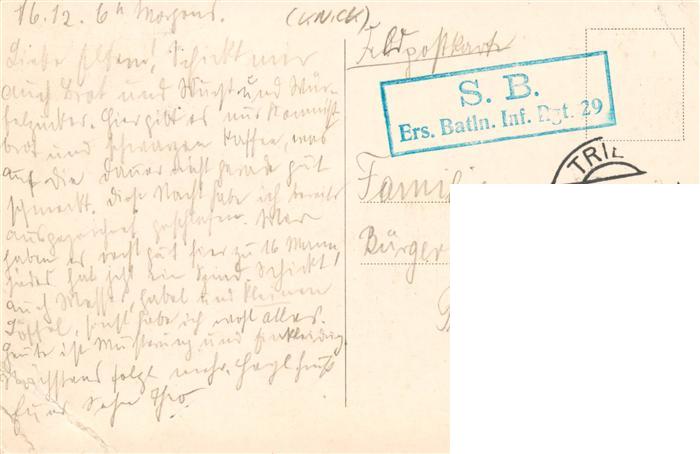 16.12. 6h Morgens.
Liebe Eltern! Schickt mir
auch Brot und Wurst und Wür-
felzucker. Hier gibt es nur Kommiß-
brot und schwarzen Kaffee, was
auf die Dauer nicht gerade gut
schmeckt. Diese Nacht habe ich bereits
ausgezeichnet geschlafen. Wir
haben es recht gut hier zu 16 Mann,
jeder hat jetzt ein Spind. Schickt
auch Messer, Gabel und kleinen
Löffel, sonst habe ich wohl alles.
Heute ist Musterung und Einkleidung.
Nächstens folgt mehr. Herzl. Gruß
Euer Sohn Theo
Feldpostkarte
S. B.
Ers. Batln. Inf. Rgt. 29
TRI
Famili
Bürger